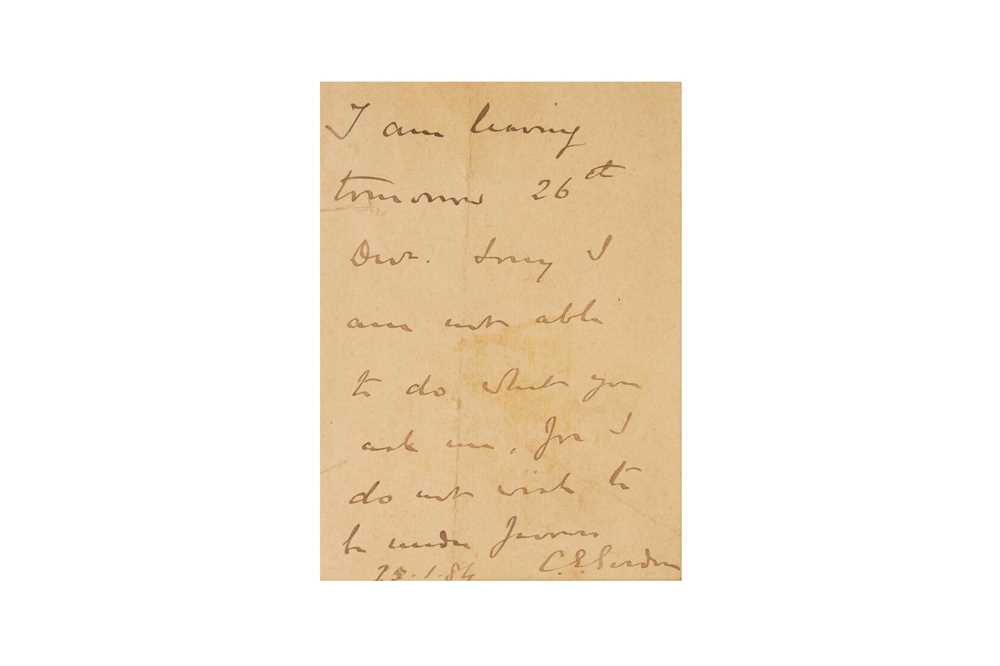 I am leaving
tomorrow 26th
Dear. Sorry I
am not able
to do what you
ask me, for I
do not wish to
be under favours
25.1.84 C.E. Gordon